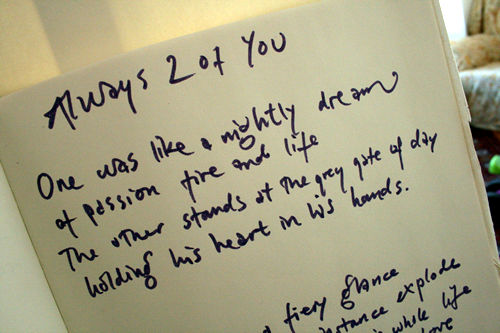 Always 2 of You
One was like a nightly dream
of passion fire and life
The other stands at the grey gate of day
holding his heart in his hands.
fiery glance
explode
while life